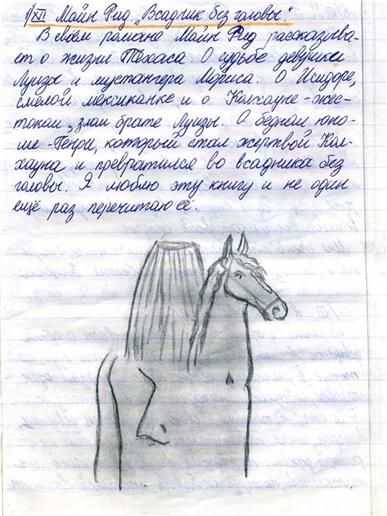 1/XI Майн Рид „Всадник без головы"
В своём романе Майн Рид рассказыва-
ет о жизни Техаса. О судьбе девушки
Луизы и мустангера Мориса. О Исидоре,
смелой мексиканке и о Колхауне-жес-
током, злом брате Луизы. О бедном юно-
ше-Генри, который стал жертвой Кол-
хауна и превратился во всадника без
головы. Я люблю эту книгу и не один
ещё раз перечитаю её.